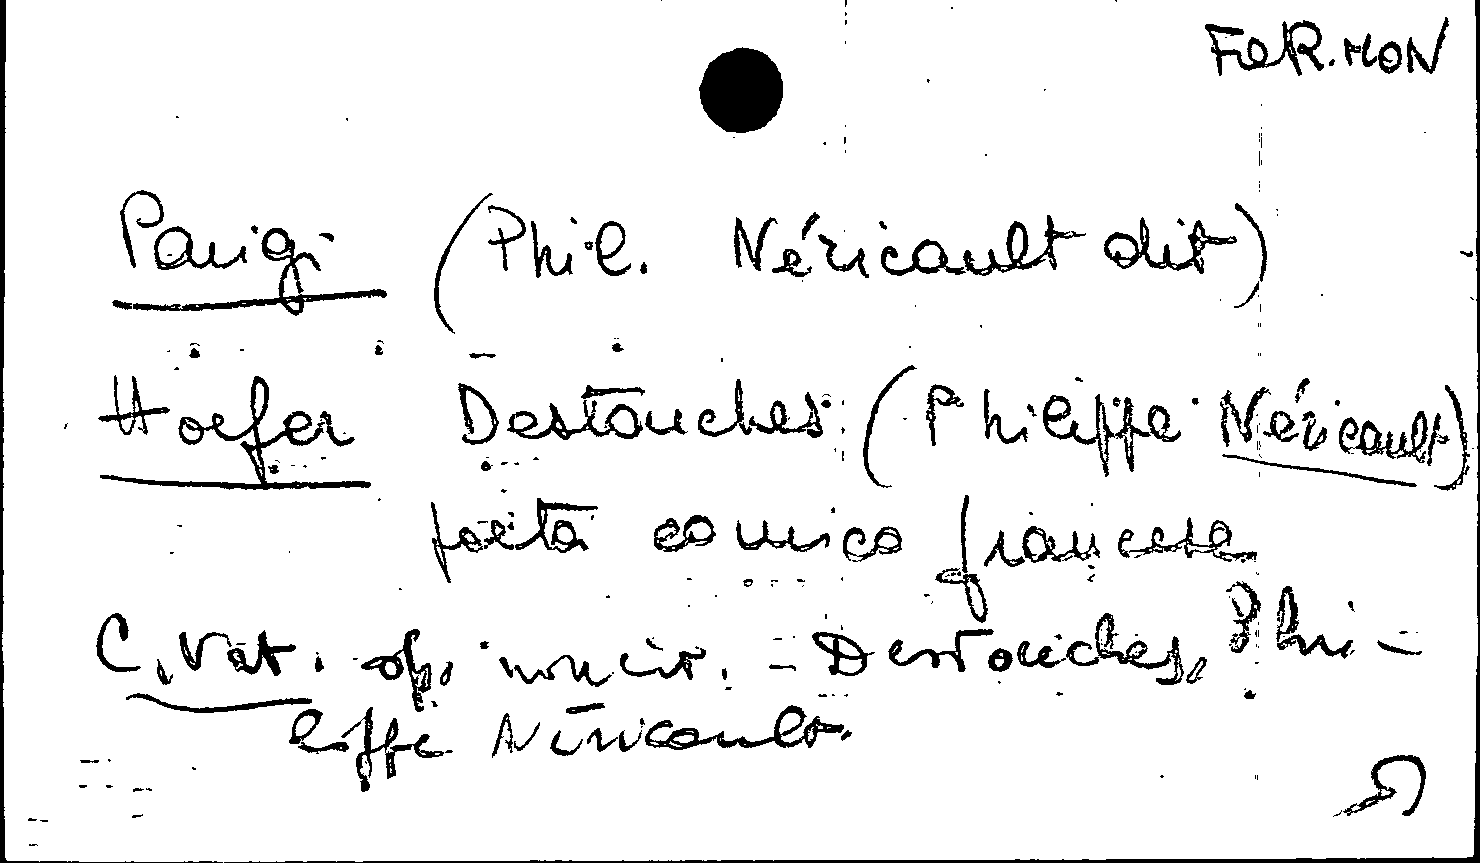 FOR.MON
Parigi (Phil. Néricault dit)
Hoefer Destouches (Philippe Néricault)
poeta comico francese
C. Vat. op. non cit. - Destouches, Phi-
lippe Néricault.